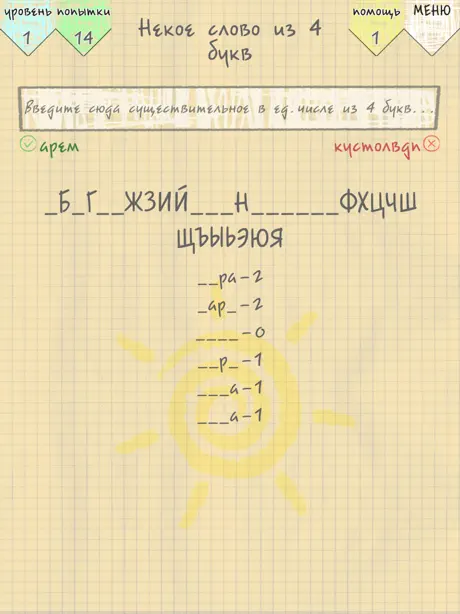 уровень попытки
1 14
Некое слово из 4
букв
помощь МЕНЮ
1
Введите сюда существительное в ед. числе из 4 букв...
арем
кустолвдп
_Б_Г__ЖЗИЙ___Н______ФХЦЧШ
ЩЪЫЬЭЮЯ
__ра-2
_ар_-2
____-0
__р_-1
___а-1
___а-1